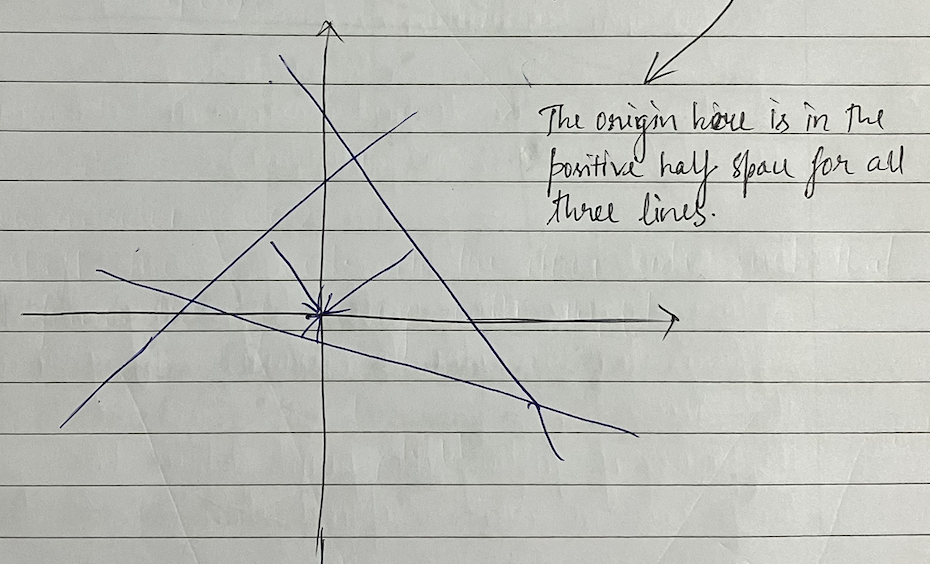 The origin here is in the
positive half space for all
three lines.